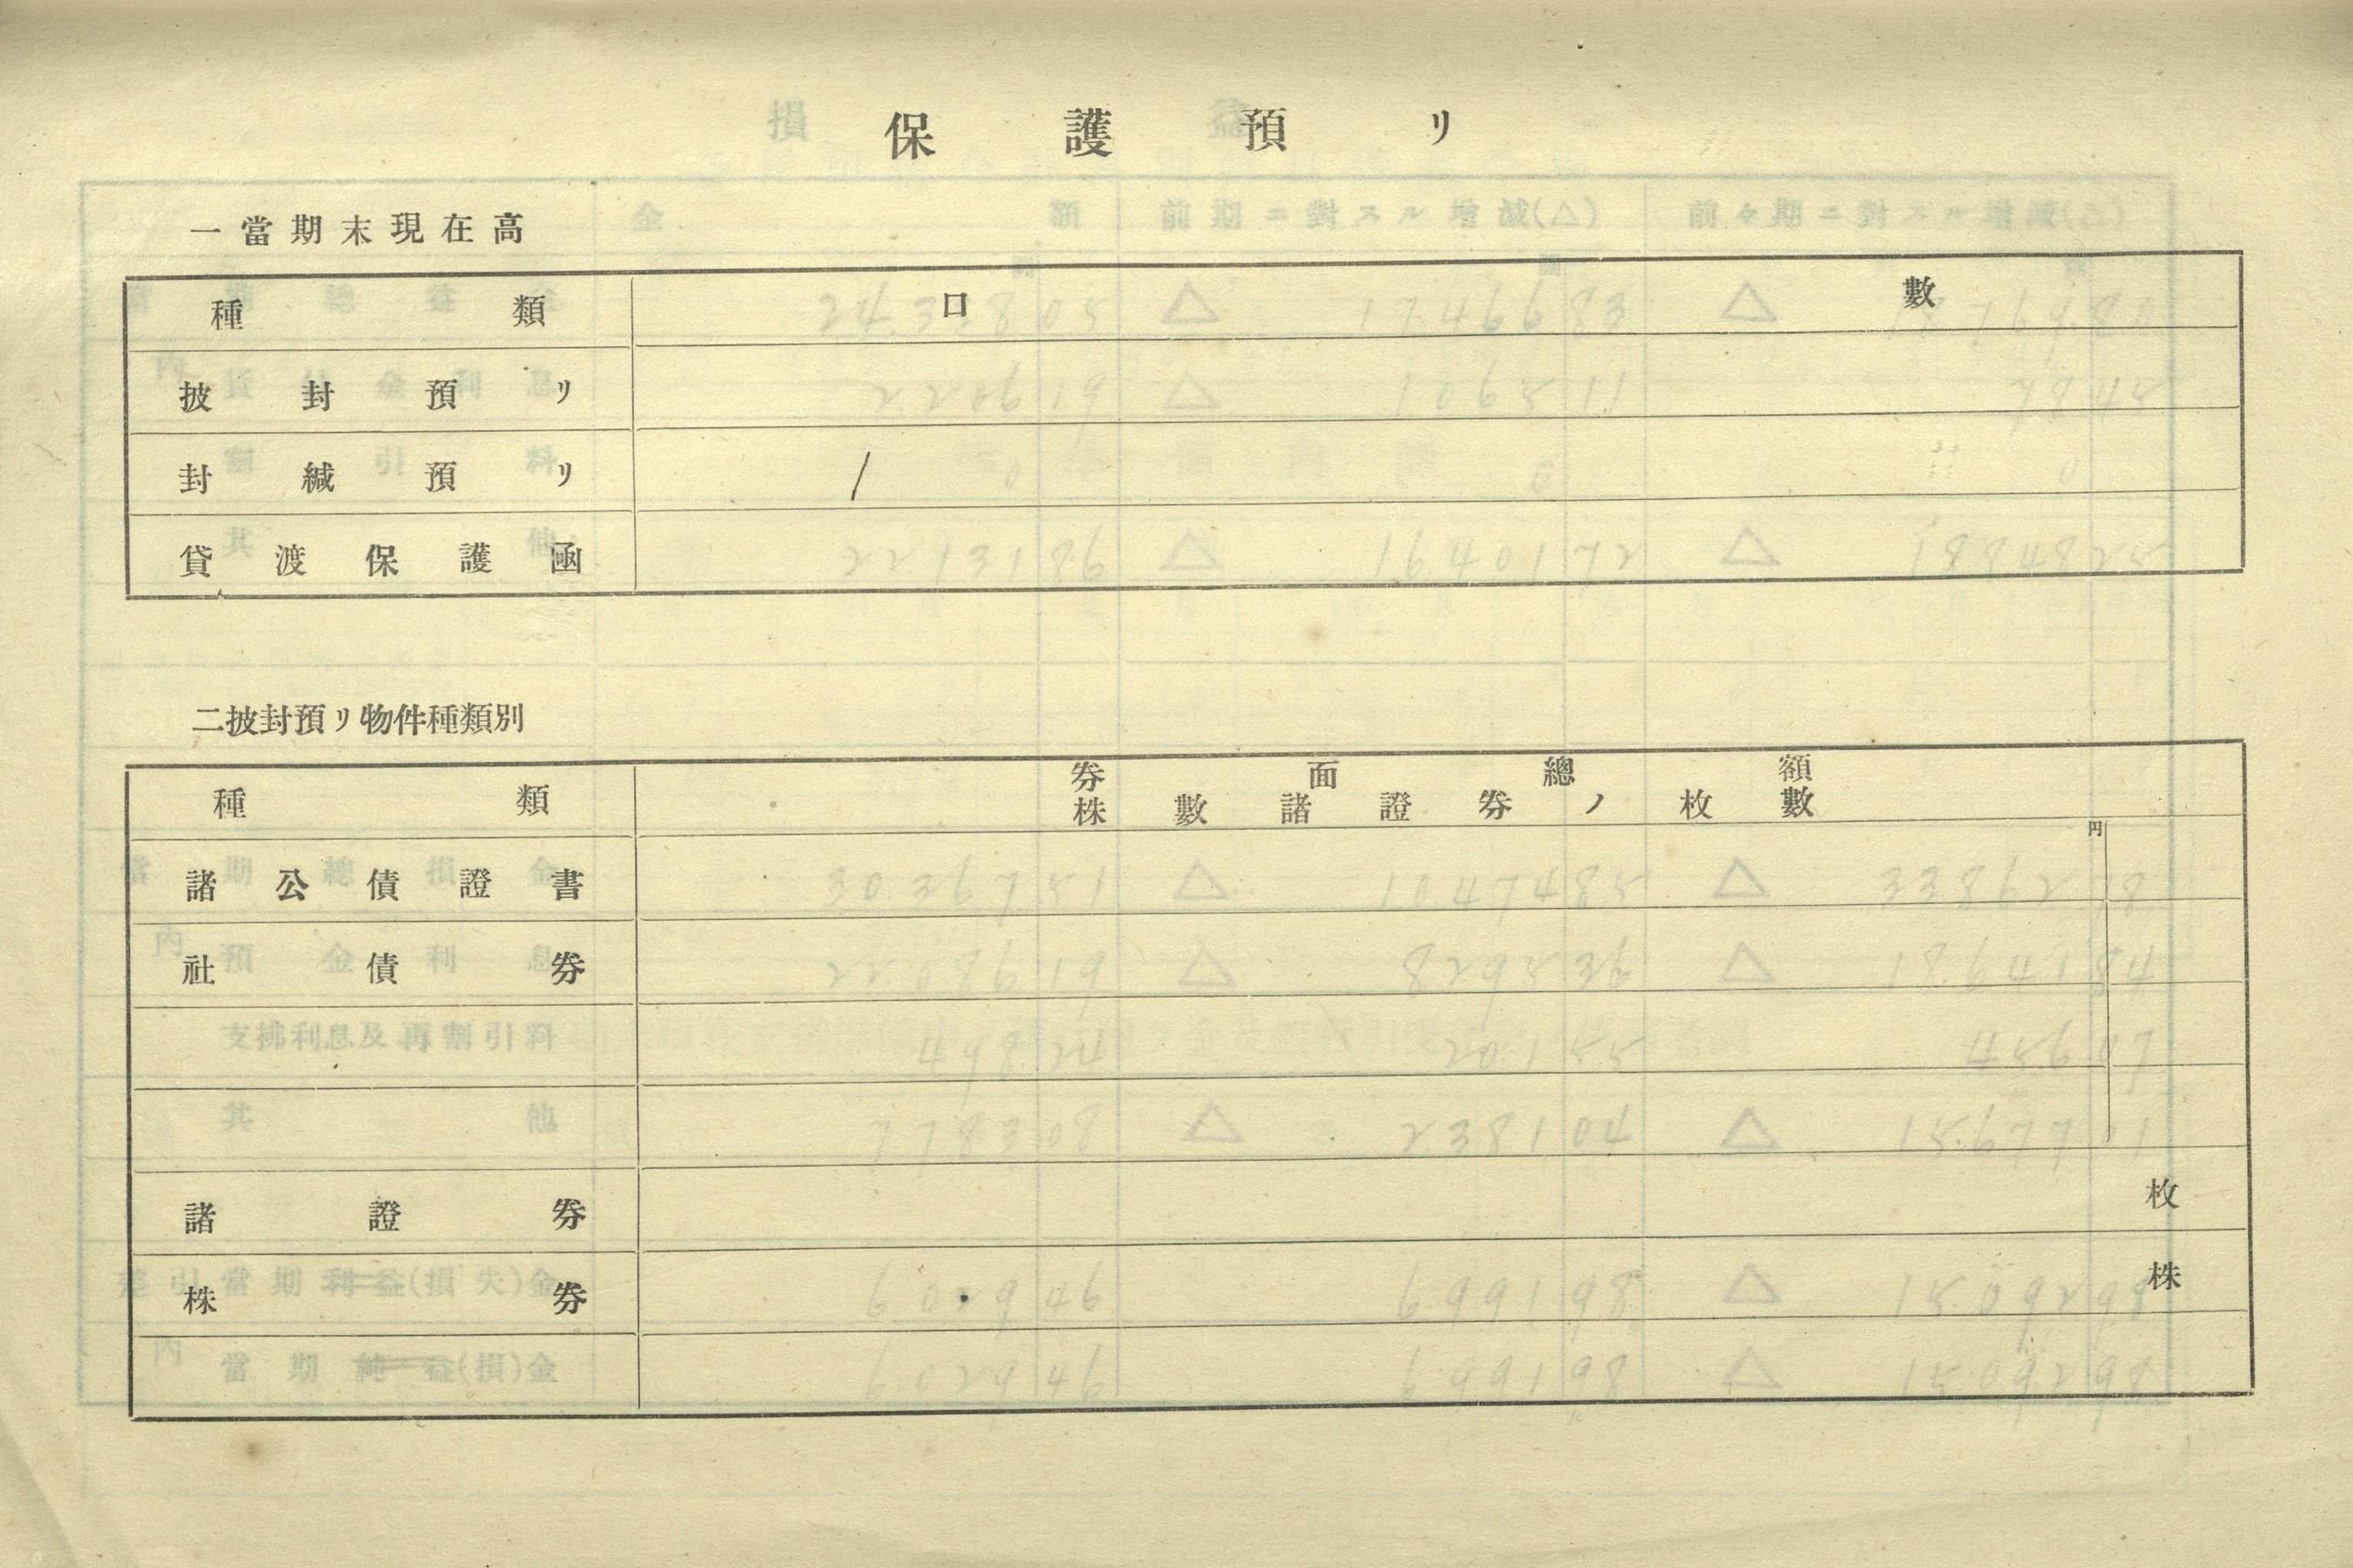 保護預リ
一當期末現在高
種類 口數
披封預リ
封緘預リ /
貸渡保護凾
二披封預リ物件種類別
種類 券面總額
株數諸證券ノ枚數
円
諸公債證書
社債券
諸證券 枚
株券 株